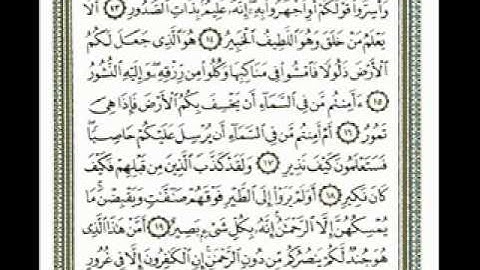 وَأَسِرُّوا۟ قَوْلَكُمْ أَوِ ٱجْهَرُوا۟ بِهِۦٓ إِنَّهُۥ عَلِيمٌۢ بِذَاتِ ٱلصُّدُورِ ١٣ أَلَا
يَعْلَمُ مَنْ خَلَقَ وَهُوَ ٱللَّطِيفُ ٱلْخَبِيرُ ١٤ هُوَ ٱلَّذِى جَعَلَ لَكُمُ
ٱلْأَرْضَ ذَلُولًا فَٱمْشُوا۟ فِى مَنَاكِبِهَا وَكُلُوا۟ مِن رِّزْقِهِۦ وَإِلَيْهِ ٱلنُّشُورُ
١٥ ءَأَمِنتُم مَّن فِى ٱلسَّمَآءِ أَن يَخْسِفَ بِكُمُ ٱلْأَرْضَ فَإِذَا هِىَ
تَمُورُ ١٦ أَمْ أَمِنتُم مَّن فِى ٱلسَّمَآءِ أَن يُرْسِلَ عَلَيْكُمْ حَاصِبًا
فَسَتَعْلَمُونَ كَيْفَ نَذِيرِ ١٧ وَلَقَدْ كَذَّبَ ٱلَّذِينَ مِن قَبْلِهِمْ فَكَيْفَ
كَانَ نَكِيرِ ١٨ أَوَلَمْ يَرَوْا۟ إِلَى ٱلطَّيْرِ فَوْقَهُمْ صَٰٓفَّٰتٍ وَيَقْبِضْنَ مَا
يُمْسِكُهُنَّ إِلَّا ٱلرَّحْمَٰنُ إِنَّهُۥ بِكُلِّ شَىْءٍۭ بَصِيرٌ ١٩ أَمَّنْ هَٰذَا ٱلَّذِى
هُوَ جُندٌ لَّكُمْ يَنصُرُكُم مِّن دُونِ ٱلرَّحْمَٰنِ إِنِ ٱلْكَٰفِرُونَ إِلَّا فِى غُرُورٍ